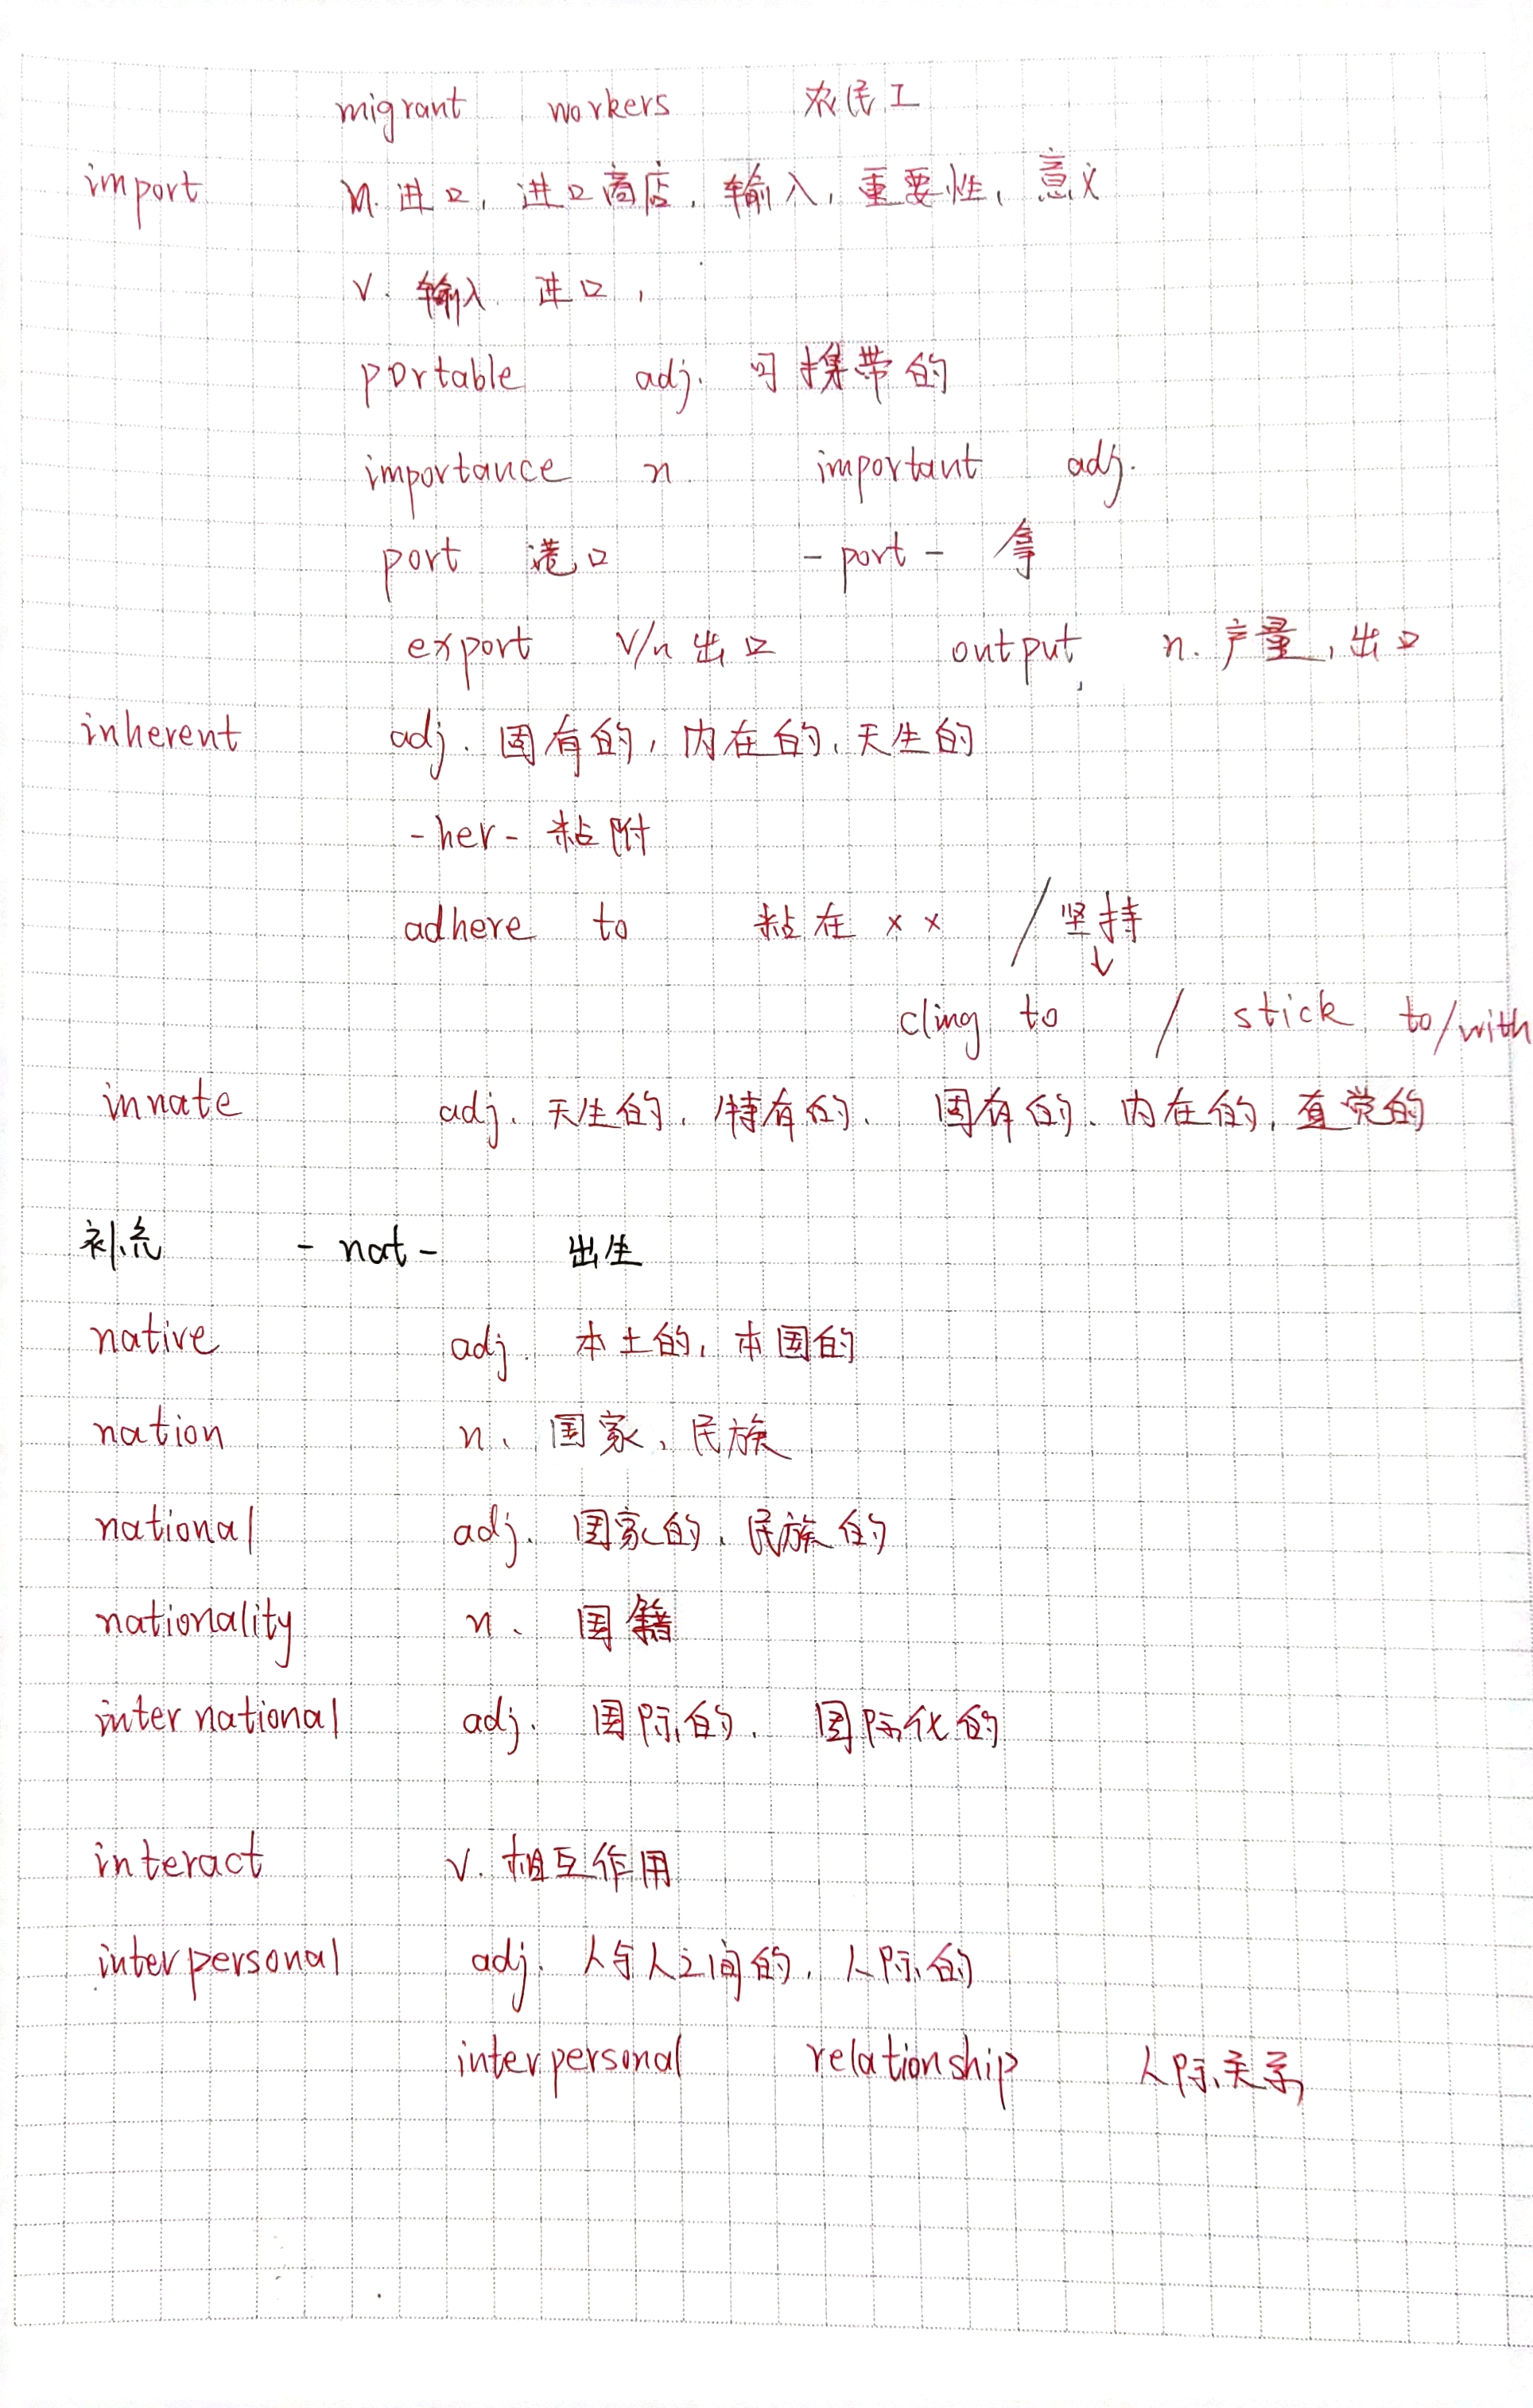 migrant workers 农民工
import n. 进口, 进口商店, 输入, 重要性, 意义
v. 输入 进口,
portable adj. 可携带的
importance n. important adj.
port 港口 -port- 拿
export v/n 出口 output n. 产量, 出口
inherent adj. 固有的, 内在的, 天生的
-her- 粘附
adhere to 粘在 x x / 坚持
↓
cling to / stick to/with
innate adj. 天生的, 特有的, 固有的、内在的, 直觉的
补充 -nat- 出生
native adj. 本土的, 本国的
nation n、国家、民族
national adj. 国家的、民族的
nationality n、国籍
international adj. 国际的. 国际化的
interact v. 相互作用
interpersonal adj. 人与人之间的, 人际的
interpersonal relationship 人际关系